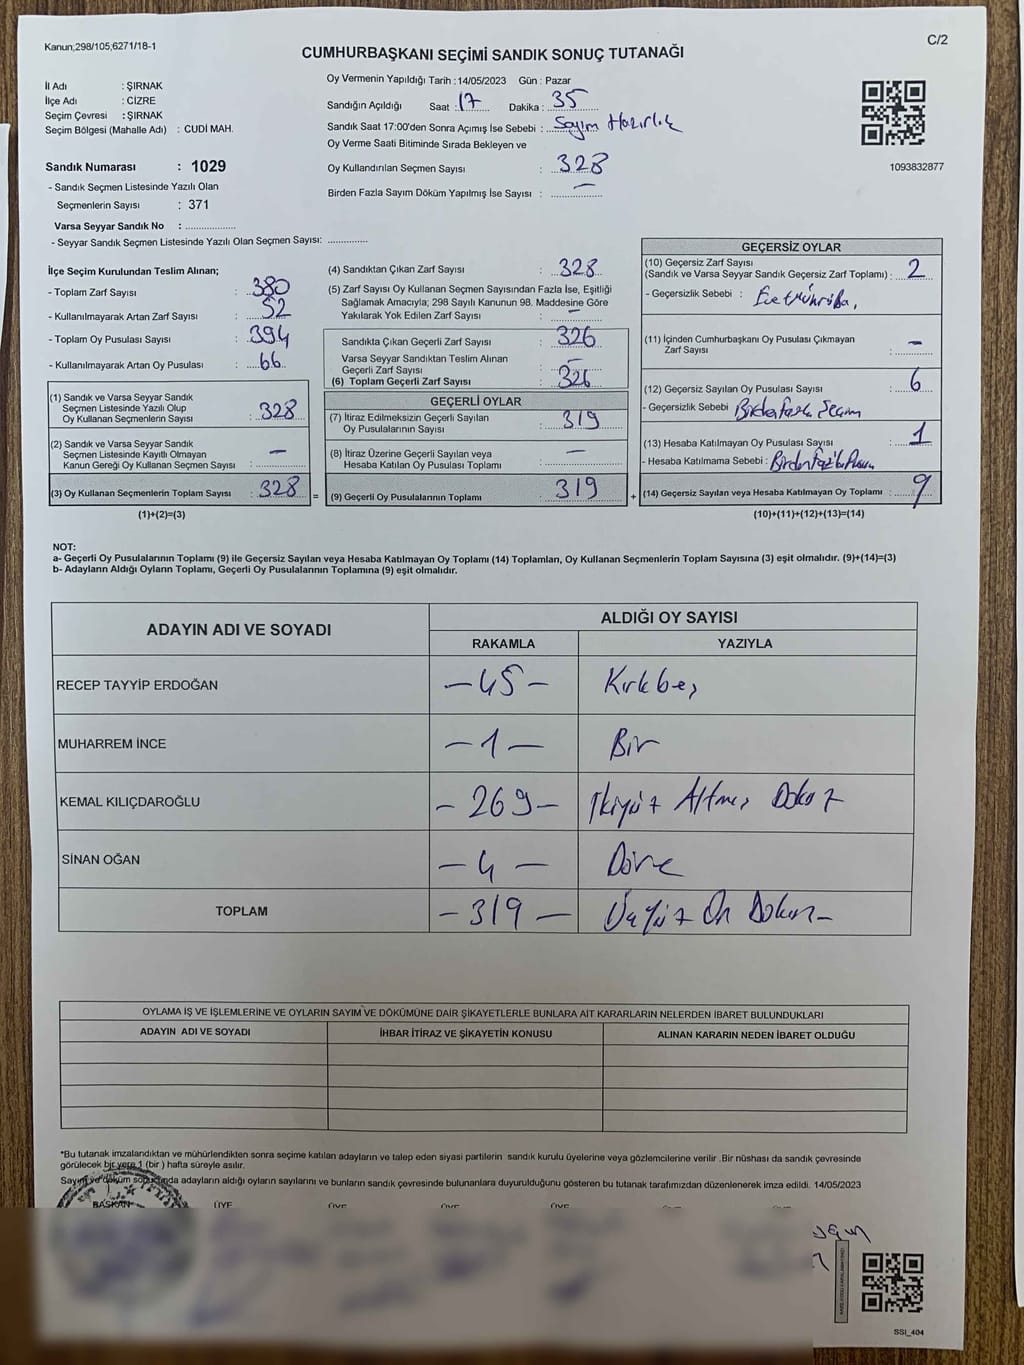 Kanun;298/105,6271/18-1
C/2
CUMHURBAŞKANI SEÇİMİ SANDIK SONUÇ TUTANAĞI
İl Adı : ŞIRNAK
İlçe Adı : CİZRE
Seçim Çevresi : ŞIRNAK
Seçim Bölgesi (Mahalle Adı) : CUDİ MAH.
Oy Vermenin Yapıldığı Tarih : 14/05/2023 Gün : Pazar
Sandığın Açıldığı Saat : 17 Dakika : 35
Sandık Saat 17:00'den Sonra Açımış İse Sebebi : Sayım Hazırlık
Oy Verme Saati Bitiminde Sırada Bekleyen ve
Oy Kullandırılan Seçmen Sayısı : 328
Birden Fazla Sayım Döküm Yapılmış İse Sayısı : —
1093832877
Sandık Numarası : 1029
- Sandık Seçmen Listesinde Yazılı Olan
Seçmenlerin Sayısı : 371
Varsa Seyyar Sandık No : ....................
- Seyyar Sandık Seçmen Listesinde Yazılı Olan Seçmen Sayısı: ...............
İlçe Seçim Kurulundan Teslim Alınan;
- Toplam Zarf Sayısı : 380
- Kullanılmayarak Artan Zarf Sayısı : 52
- Toplam Oy Pusulası Sayısı : 394
- Kullanılmayarak Artan Oy Pusulası : 66
(1) Sandık ve Varsa Seyyar Sandık
Seçmen Listesinde Yazılı Olup
Oy Kullanan Seçmenlerin Sayısı : 328
(2) Sandık ve Varsa Seyyar Sandık
Seçmen Listesinde Kayıtlı Olmayan
Kanun Gereği Oy Kullanan Seçmen Sayısı : —
(3) Oy Kullanan Seçmenlerin Toplam Sayısı : 328
(1)+(2)=(3)
(4) Sandıktan Çıkan Zarf Sayısı : 328
(5) Zarf Sayısı Oy Kullanan Seçmen Sayısından Fazla İse, Eşitliği
Sağlamak Amacıyla; 298 Sayılı Kanunun 98. Maddesine Göre
Yakılarak Yok Edilen Zarf Sayısı : —
Sandıkta Çıkan Geçerli Zarf Sayısı : 326
Varsa Seyyar Sandıktan Teslim Alınan
Geçerli Zarf Sayısı : —
(6) Toplam Geçerli Zarf Sayısı : 326
GEÇERLİ OYLAR
(7) İtiraz Edilmeksizin Geçerli Sayılan
Oy Pusulalarının Sayısı : 319
(8) İtiraz Üzerine Geçerli Sayılan veya
Hesaba Katılan Oy Pusulası Toplamı : —
= (9) Geçerli Oy Pusulalarının Toplamı : 319 +
GEÇERSİZ OYLAR
(10) Geçersiz Zarf Sayısı
(Sandık ve Varsa Seyyar Sandık Geçersiz Zarf Toplamı) : 2
- Geçersizlik Sebebi :
(11) İçinden Cumhurbaşkanı Oy Pusulası Çıkmayan
Zarf Sayısı : —
(12) Geçersiz Sayılan Oy Pusulası Sayısı : 6
- Geçersizlik Sebebi Birden Fazla Seçim
(13) Hesaba Katılmayan Oy Pusulası Sayısı : 1
- Hesaba Katılmama Sebebi :
(14) Geçersiz Sayılan veya Hesaba Katılmayan Oy Toplamı : 9
(10)+(11)+(12)+(13)=(14)
NOT:
a- Geçerli Oy Pusulalarının Toplamı (9) ile Geçersiz Sayılan veya Hesaba Katılmayan Oy Toplamı (14) Toplamları, Oy Kullanan Seçmenlerin Toplam Sayısına (3) eşit olmalıdır. (9)+(14)=(3)
b- Adayların Aldığı Oyların Toplamı, Geçerli Oy Pusulalarının Toplamına (9) eşit olmalıdır.
ADAYIN ADI VE SOYADI
ALDIĞI OY SAYISI
RAKAMLA YAZIYLA
RECEP TAYYİP ERDOĞAN - 45 - Kırkbeş
MUHARREM İNCE - 1 - Bir
KEMAL KILIÇDAROĞLU - 269 - İkiyüz Altmış Dokuz
SİNAN OĞAN - 4 - Dört
TOPLAM - 319 - Üçyüz On Dokuz
OYLAMA İŞ VE İŞLEMLERİNE VE OYLARIN SAYIM VE DÖKÜMÜNE DAİR ŞİKAYETLERLE BUNLARA AİT KARARLARIN NELERDEN İBARET BULUNDUKLARI
ADAYIN ADI VE SOYADI İHBAR İTİRAZ VE ŞİKAYETİN KONUSU ALINAN KARARIN NEDEN İBARET OLDUĞU
*Bu tutanak imzalandıktan ve mühürlendikten sonra seçime katılan adayların ve talep eden siyasi partilerin sandık kurulu üyelerine veya gözlemcilerine verilir .Bir nüshası da sandık çevresinde
görülecek bir yere 1 (bir ) hafta süreyle asılır.
Sayım ve döküm sonucunda adayların aldığı oyların sayılarını ve bunların sandık çevresinde bulunanlara duyurulduğunu gösteren bu tutanak tarafımızdan düzenlenerek imza edildi. 14/05/2023
BAŞKAN ÜYE ÜYE ÜYE ÜYE
SSI_404